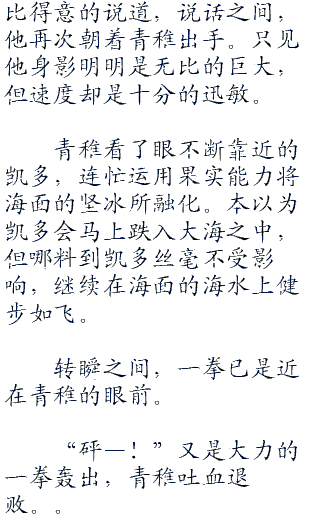 比得意的说道，说话之间，
他再次朝着青稚出手。只见
他身影明明是无比的巨大，
但速度却是十分的迅敏。
青稚看了眼不断靠近的
凯多，连忙运用果实能力将
海面的坚冰所融化。本以为
凯多会马上跌入大海之中，
但哪料到凯多丝毫不受影
响，继续在海面的海水上健
步如飞。
转瞬之间，一拳已是近
在青稚的眼前。
“砰—！”又是大力的
一拳轰出，青稚吐血退
败。。